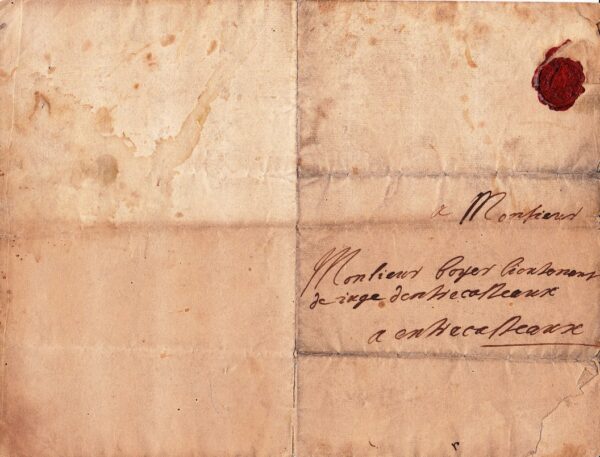 a Monsieur
Monsieur boyer lieutenant
de iuge dentrecasteaux
a entrecasteaux